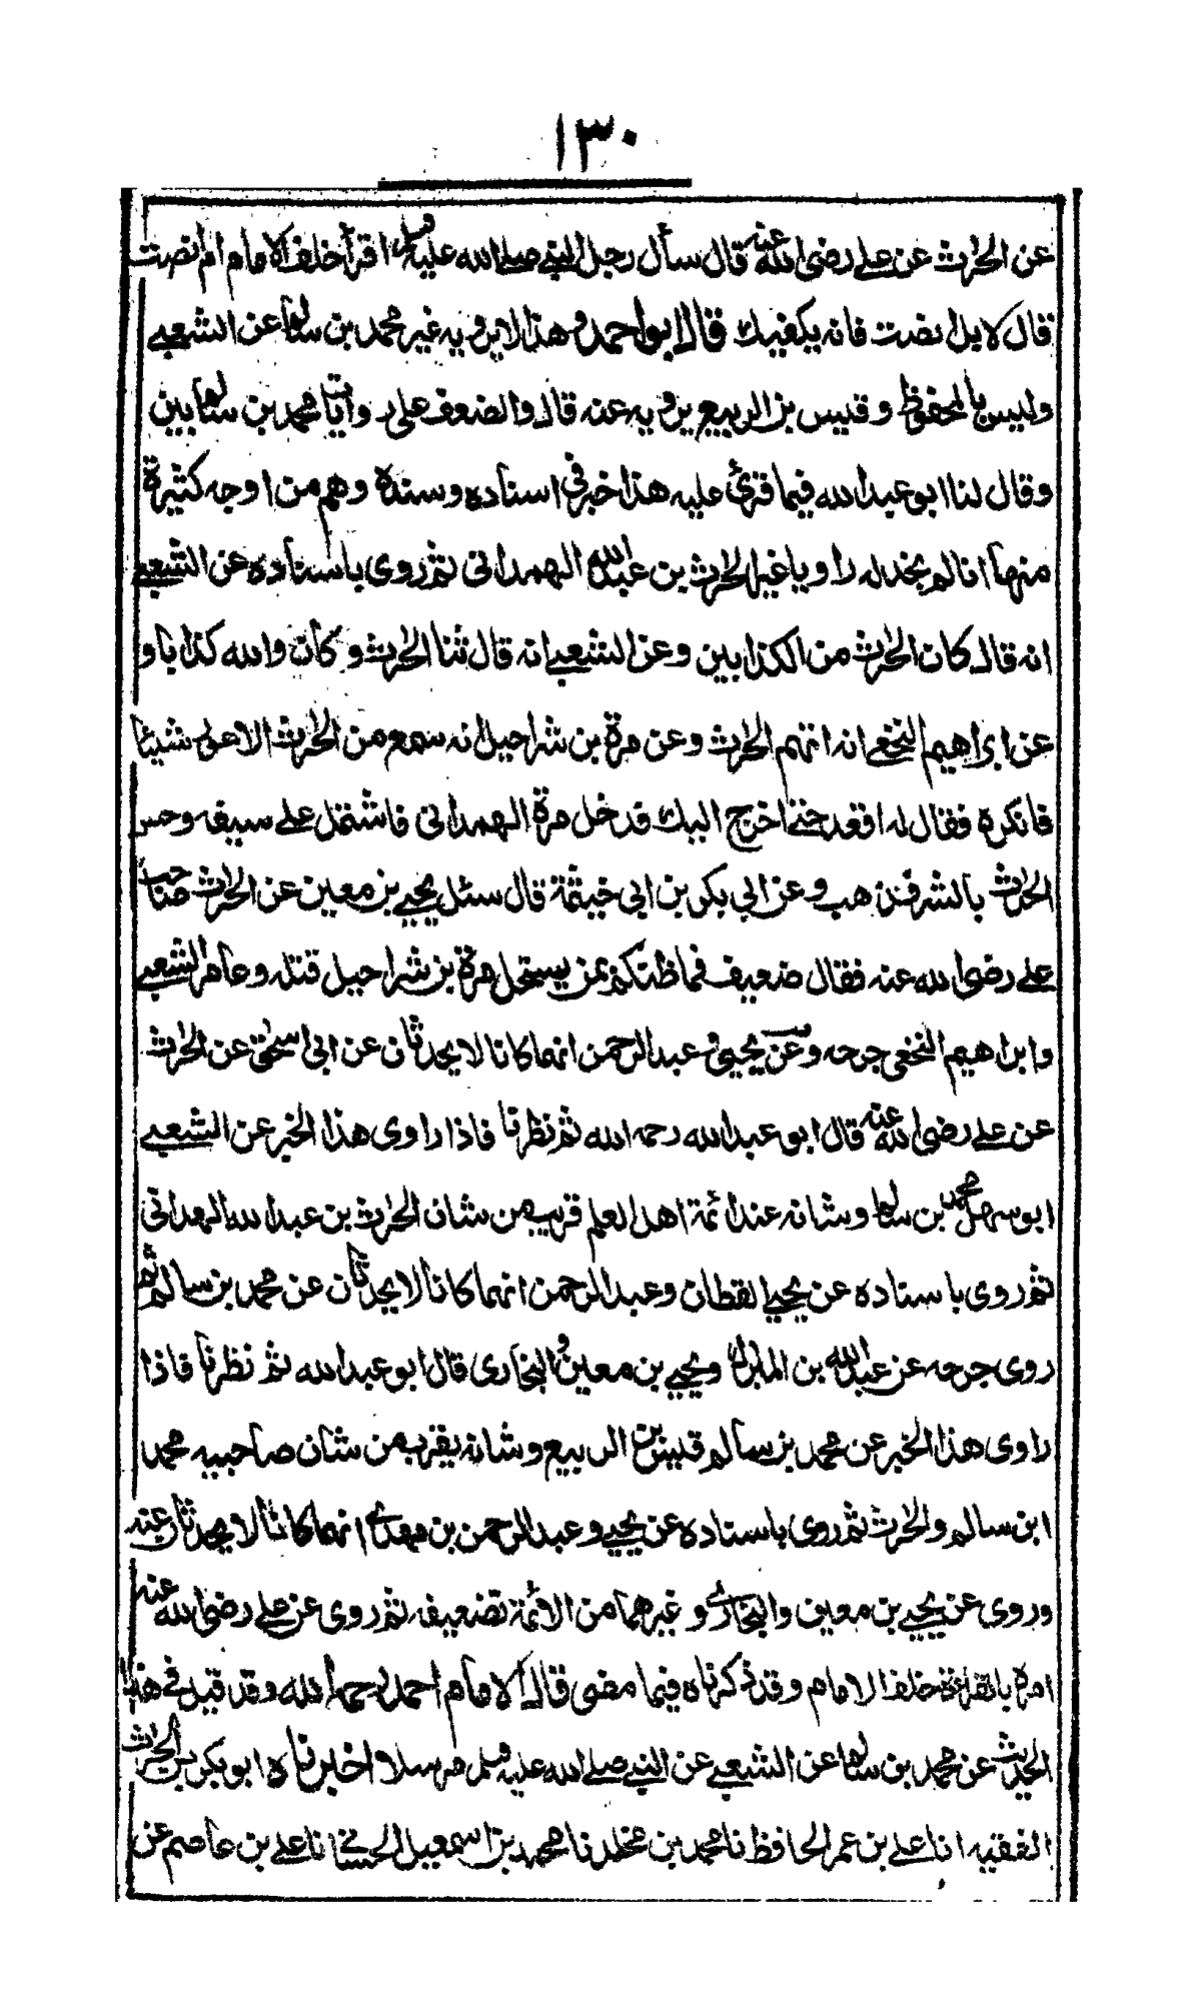 ١٣٠
عن الحرث عن علي رضى الله عنه قال سأل رجل النبي صلى الله عليه وسلم اقرأ خلف الامام ام انصت
قال لا بل انصت فانه يكفيك قال ابو احمد وهذا لا يرويه غير محمد بن سالم عن الشعبي
وليس بالمحفوظ وقيس بن الربيع يرويه عنه قال والضعف على روايات محمد بن سالم بين
وقال لنا ابو عبد الله فيما قرئ عليه هذا خبر في اسناده وسنده وهم من اوجه كثيرة
منها انا لم نجد له راويا غير الحرث بن عبد الله الهمداني ثم روى باسناده عن الشعبي
انه قال كان الحرث من الكذابين وعن الشعبي انه قال ثنا الحرث وكان والله كذابا و
عن ابراهيم النخعي انه اتهم الحرث وعن مرة بن شراحيل انه سمع من الحرث الاعور شيئا
فانكره فقال له اقعد حتى اخرج اليك فدخل مرة الهمداني فاشتمل على سيفه وحس
الحرث بالشر فذهب وعن ابي بكر بن ابي خيثمة قال سئل يحيى بن معين عن الحرث صاحب
علي رضى الله عنه فقال ضعيف فما ظنكم بمن يستحل مرة بن شراحيل قتله وعامر الشعبي
وابراهيم النخعي جرحه وعن يحيى وعبد الرحمن انهما كانا لا يحدثان عن ابي اسحق عن الحرث
عن علي رضى الله عنه قال ابو عبد الله رحمه الله ثم نظرنا فاذا راوى هذا الخبر عن الشعبي
ابو سهل محمد بن سالم وشانه عند ائمة اهل العلم قريب من شان الحرث بن عبد الله الهمداني
ثم روى باسناده عن يحيى القطان وعبد الرحمن انهما كانا لا يحدثان عن محمد بن سالم ثم
روى جرحه عن عبد الله بن المبارك ويحيى بن معين والبخاري قال ابو عبد الله ثم نظرنا فاذا
راوى هذا الخبر عن محمد بن سالم قيس بن الربيع وشانه يقرب من شان صاحبيه محمد
ابن سالم والحرث ثم روى باسناده عن يحيى وعبد الرحمن بن مهدي انهما كانا لا يحدثان عنه
وروى عن يحيى بن معين والبخاري وغيرهما من الائمة تضعيفه ثم روى عن علي رضى الله عنه
امره بالقراءة خلف الامام وقد ذكرناه فيما مضى قال الامام احمد رحمه الله وقد قيل في هذا
الحديث عن محمد بن سالم عن الشعبي عن النبي صلى الله عليه وسلم مرسلا اخبرناه ابو بكر بن الحرث
الفقيه انا علي بن عمر الحافظ نا محمد بن مخلد نا محمد بن اسمعيل الحساني نا علي بن عاصم عن